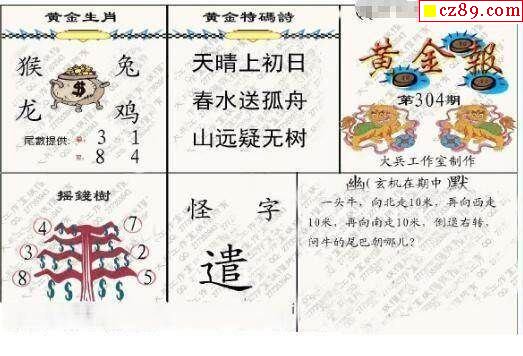 cz89.com
黄金生肖
猴 兔
龙 鸡
尾數提供:
3 1
8 4
黄金特碼詩
天晴上初日
春水送孤舟
山远疑无树
黄金報
第304期
火兵工作室制作
摇錢樹
4 7
3 2
8 5
怪 字
遣
幽(玄机在期中)默
一头牛,向北走10米,再向西走
10米,再向南走10米,倒退右转,
问牛的尾巴朝哪儿?